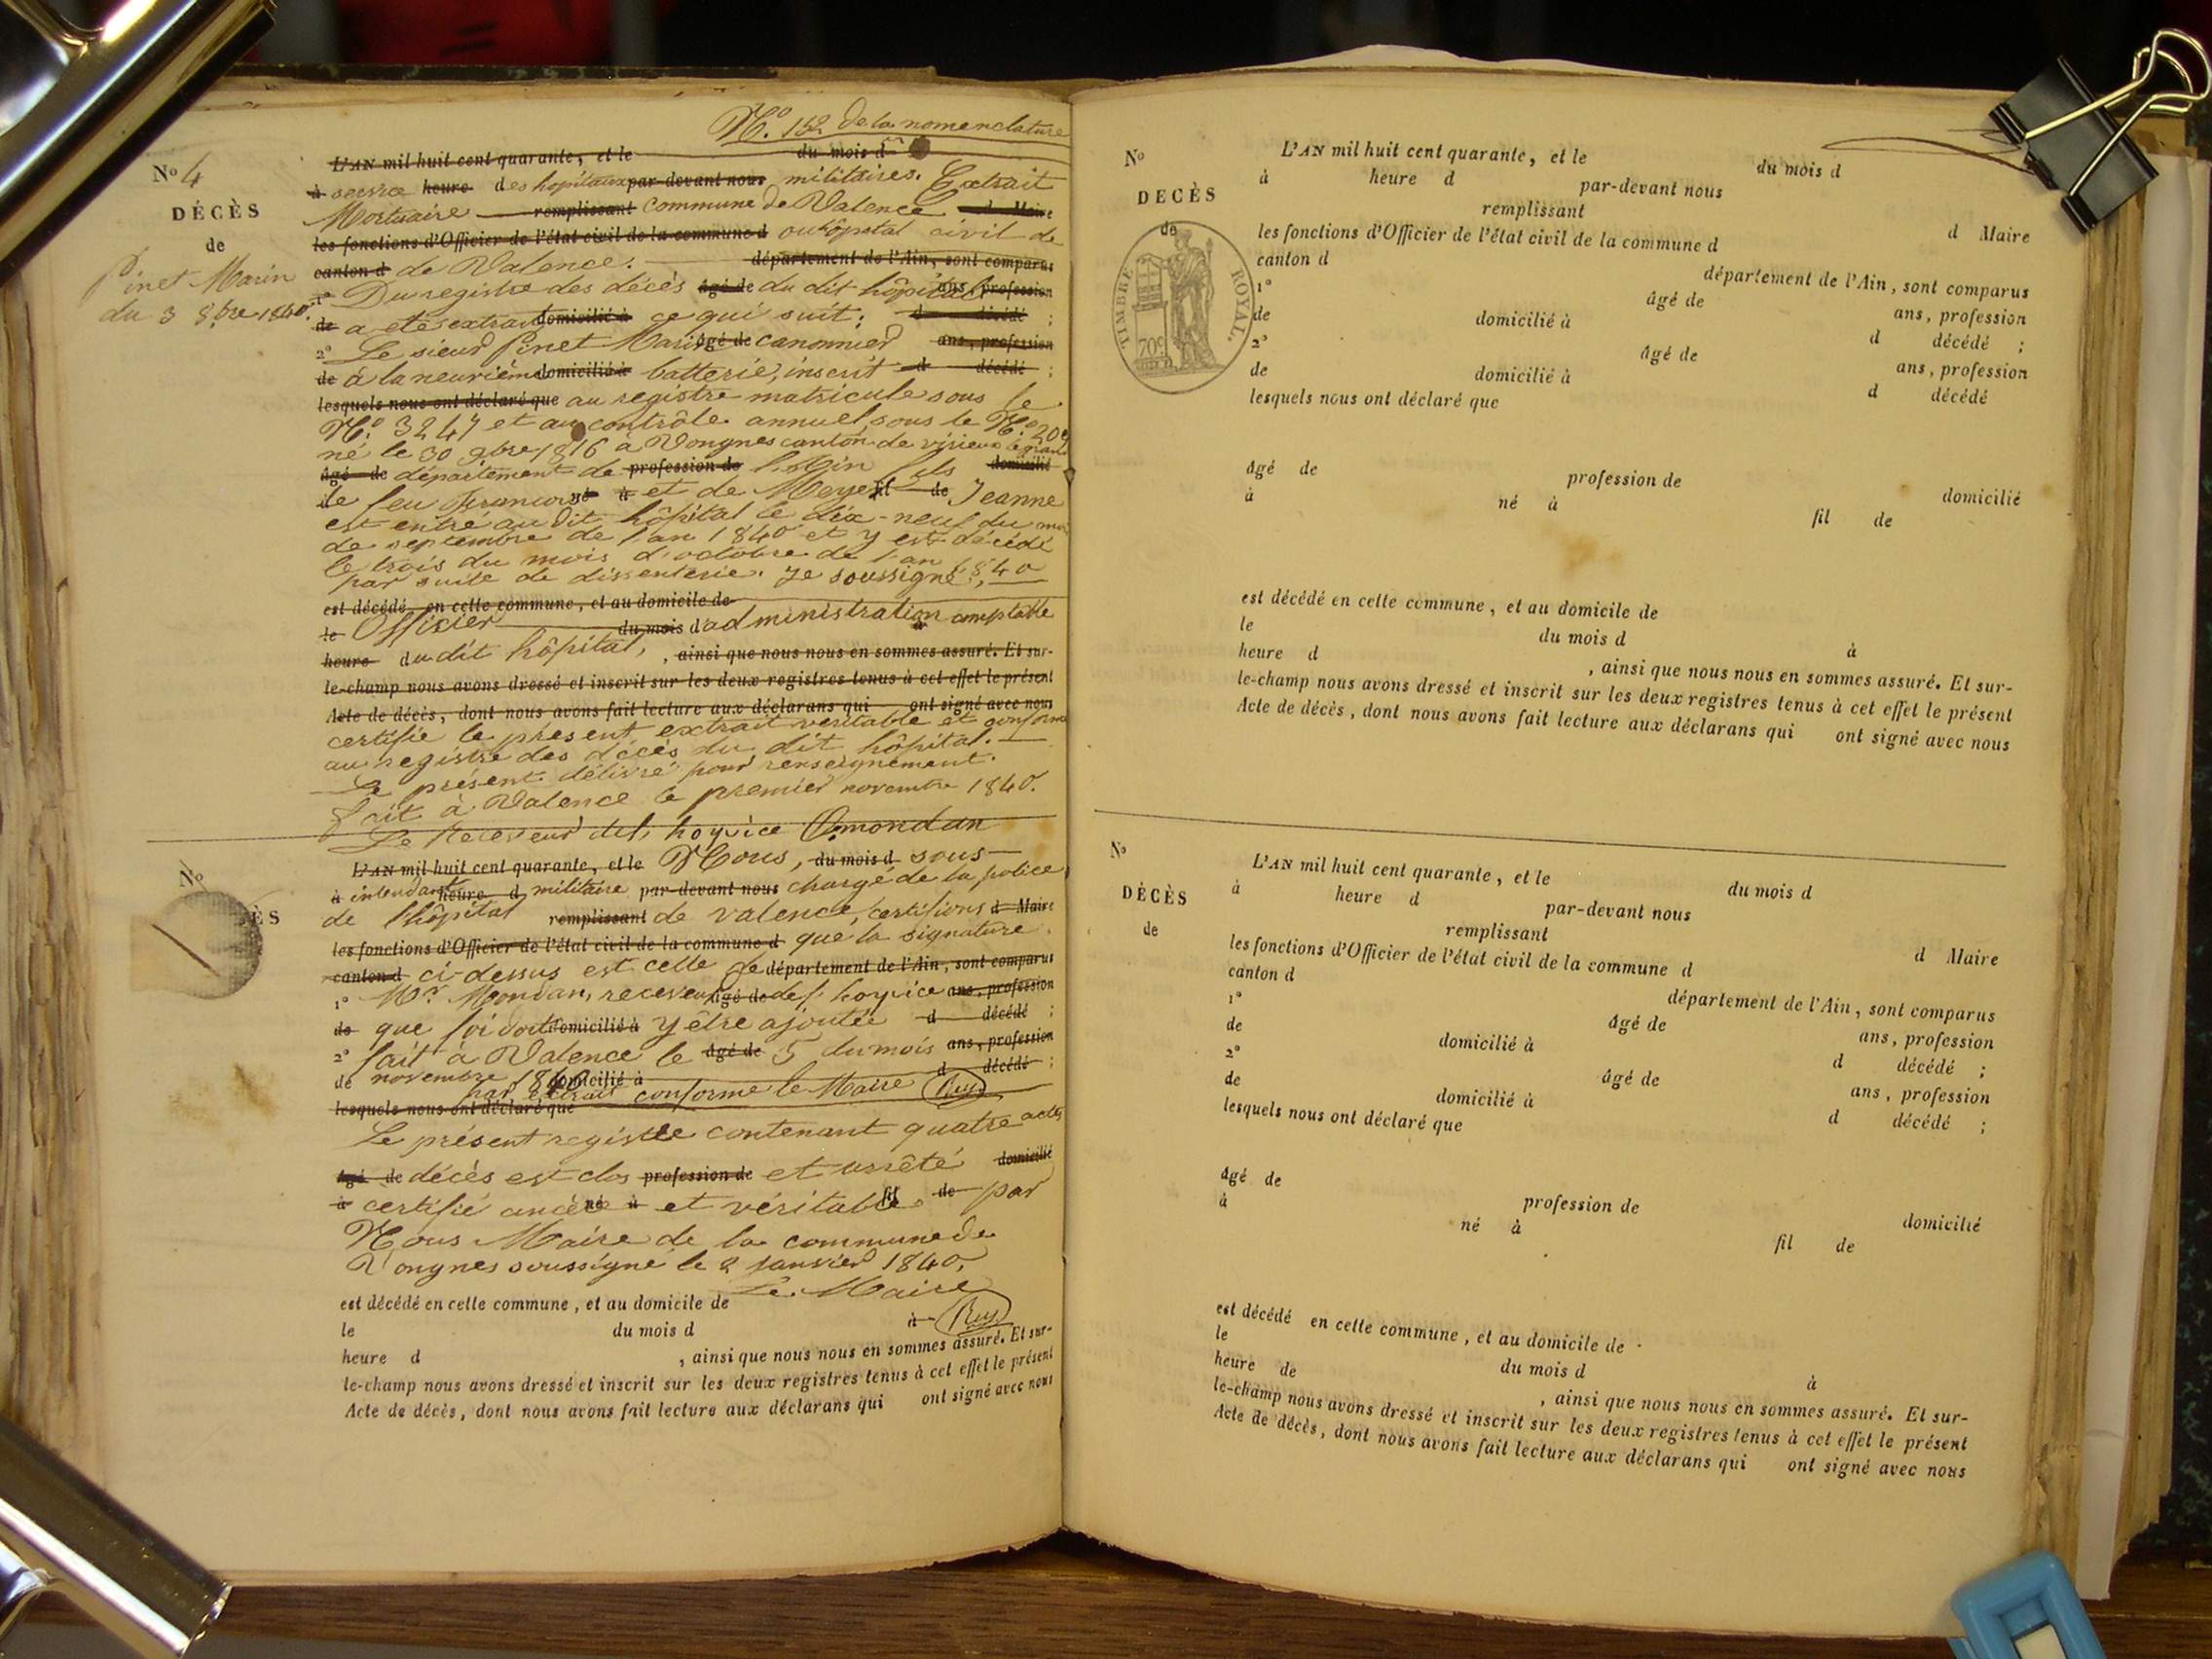 N.o 152 de la nomenclature
No 4
DÉCÈS
de
Pinet Marin
du 3 8bre 1840.
L'AN mil huit cent quarante, et le du mois d
à service heure des hopitaux par-devant nous militaires. Extrait
Mortuaire remplissant commune de Valence d Maire
les fonctions d'Officier de l'état civil de la commune d ou hôpital civil de
canton d de Valence. département de l'Ain, sont comparus
1° Du registre des décès âgé de du dit hôpital ans, profession
de a été extrait domicilié à ce qui suit; d décédé ;
2° Le sieur Pinet Marin âgé de canonnier ans, profession
de à la neuvième domicilié à batterie, inscrit d décédé ;
lesquels nous ont déclaré que au registre matricule sous le
N.o 3247 et au contrôle annuel sous le N.o 209
né le 30 9bre 1816 à Vongnes canton de virieux le grand
âgé de département de profession de l'Ain fils domicilié
de feu Francois né à et de Meyer fil de Jeanne
est entré au dit hôpital le dix-neuf du mois
de septembre de l'an 1840 et y est décédé
le trois du mois d'octobre de l'an 1840
par suite de dissenterie. Je soussigné,
est décédé en cette commune, et au domicile de
le Officier du mois d'administration comptable
heure du dit hôpital, , ainsi que nous nous en sommes assuré. Et sur-
le-champ nous avons dressé et inscrit sur les deux registres tenus à cet effet le présent
Acte de décès, dont nous avons fait lecture aux déclarans qui ont signé avec nous
certifie le présent extrait veritable et conforme
au registre des décès du dit hôpital.
Le présent délivré pour renseignement.
fait à Valence le premier novembre 1840.
Le Receveur de l'hospice Mondan
No
ÈS
L'AN mil huit cent quarante, et le Nous, du mois d sous-
à intendant heure d militaire par-devant nous chargé de la police
de l'hôpital remplissant de valence, certifions d Maire
les fonctions d'Officier de l'état civil de la commune d que la signature
canton d ci-dessus est celle de département de l'Ain, sont comparus
1° Mr. Mondan, receveur âgé de de l'hospice ans, profession
de que foi doit domicilié à y être ajoutée d décédé ;
2° fait à Valence le âgé de 5 du mois ans, profession
de novembre 1840 domicilié à d décédé ;
par extrait conforme le Maire Ruy
lesquels nous ont déclaré que
Le présent registre contenant quatre actes
âgé de décès est clos profession de et arrêté domicilié
à certifié né à et véritable fil de par
Nous Maire de la commune de
Vongnes soussigné le 2 janvier 1840.
Le Maire
est décédé en cette commune, et au domicile de
Ruy
le du mois d à
heure d , ainsi que nous nous en sommes assuré. Et sur-
le-champ nous avons dressé et inscrit sur les deux registres tenus à cet effet le présent
Acte de décès, dont nous avons fait lecture aux déclarans qui ont signé avec nous
No
DECÈS
de
TIMBRE ROYAL.
70c
L'AN mil huit cent quarante, et le du mois d
à heure d par-devant nous
remplissant
les fonctions d'Officier de l'état civil de la commune d d Maire
canton d département de l'Ain, sont comparus
1° âgé de ans, profession
de domicilié à d décédé ;
2° âgé de ans, profession
de domicilié à d décédé
lesquels nous ont déclaré que
âgé de profession de domicilié
à né à fil de
est décédé en cette commune, et au domicile de
le du mois d à
heure d , ainsi que nous nous en sommes assuré. Et sur-
le-champ nous avons dressé et inscrit sur les deux registres tenus à cet effet le présent
Acte de décès, dont nous avons fait lecture aux déclarans qui ont signé avec nous
No
DÉCÈS
de
L'AN mil huit cent quarante, et le du mois d
à heure d par-devant nous
remplissant
les fonctions d'Officier de l'état civil de la commune d d Maire
canton d département de l'Ain, sont comparus
1° âgé de ans, profession
de domicilié à d décédé ;
2° âgé de ans, profession
de domicilié à d décédé ;
lesquels nous ont déclaré que
âgé de profession de domicilié
à né à fil de
est décédé en cette commune, et au domicile de
le du mois d à
heure de , ainsi que nous nous en sommes assuré. Et sur-
le-champ nous avons dressé et inscrit sur les deux registres tenus à cet effet le présent
Acte de décès, dont nous avons fait lecture aux déclarans qui ont signé avec nous